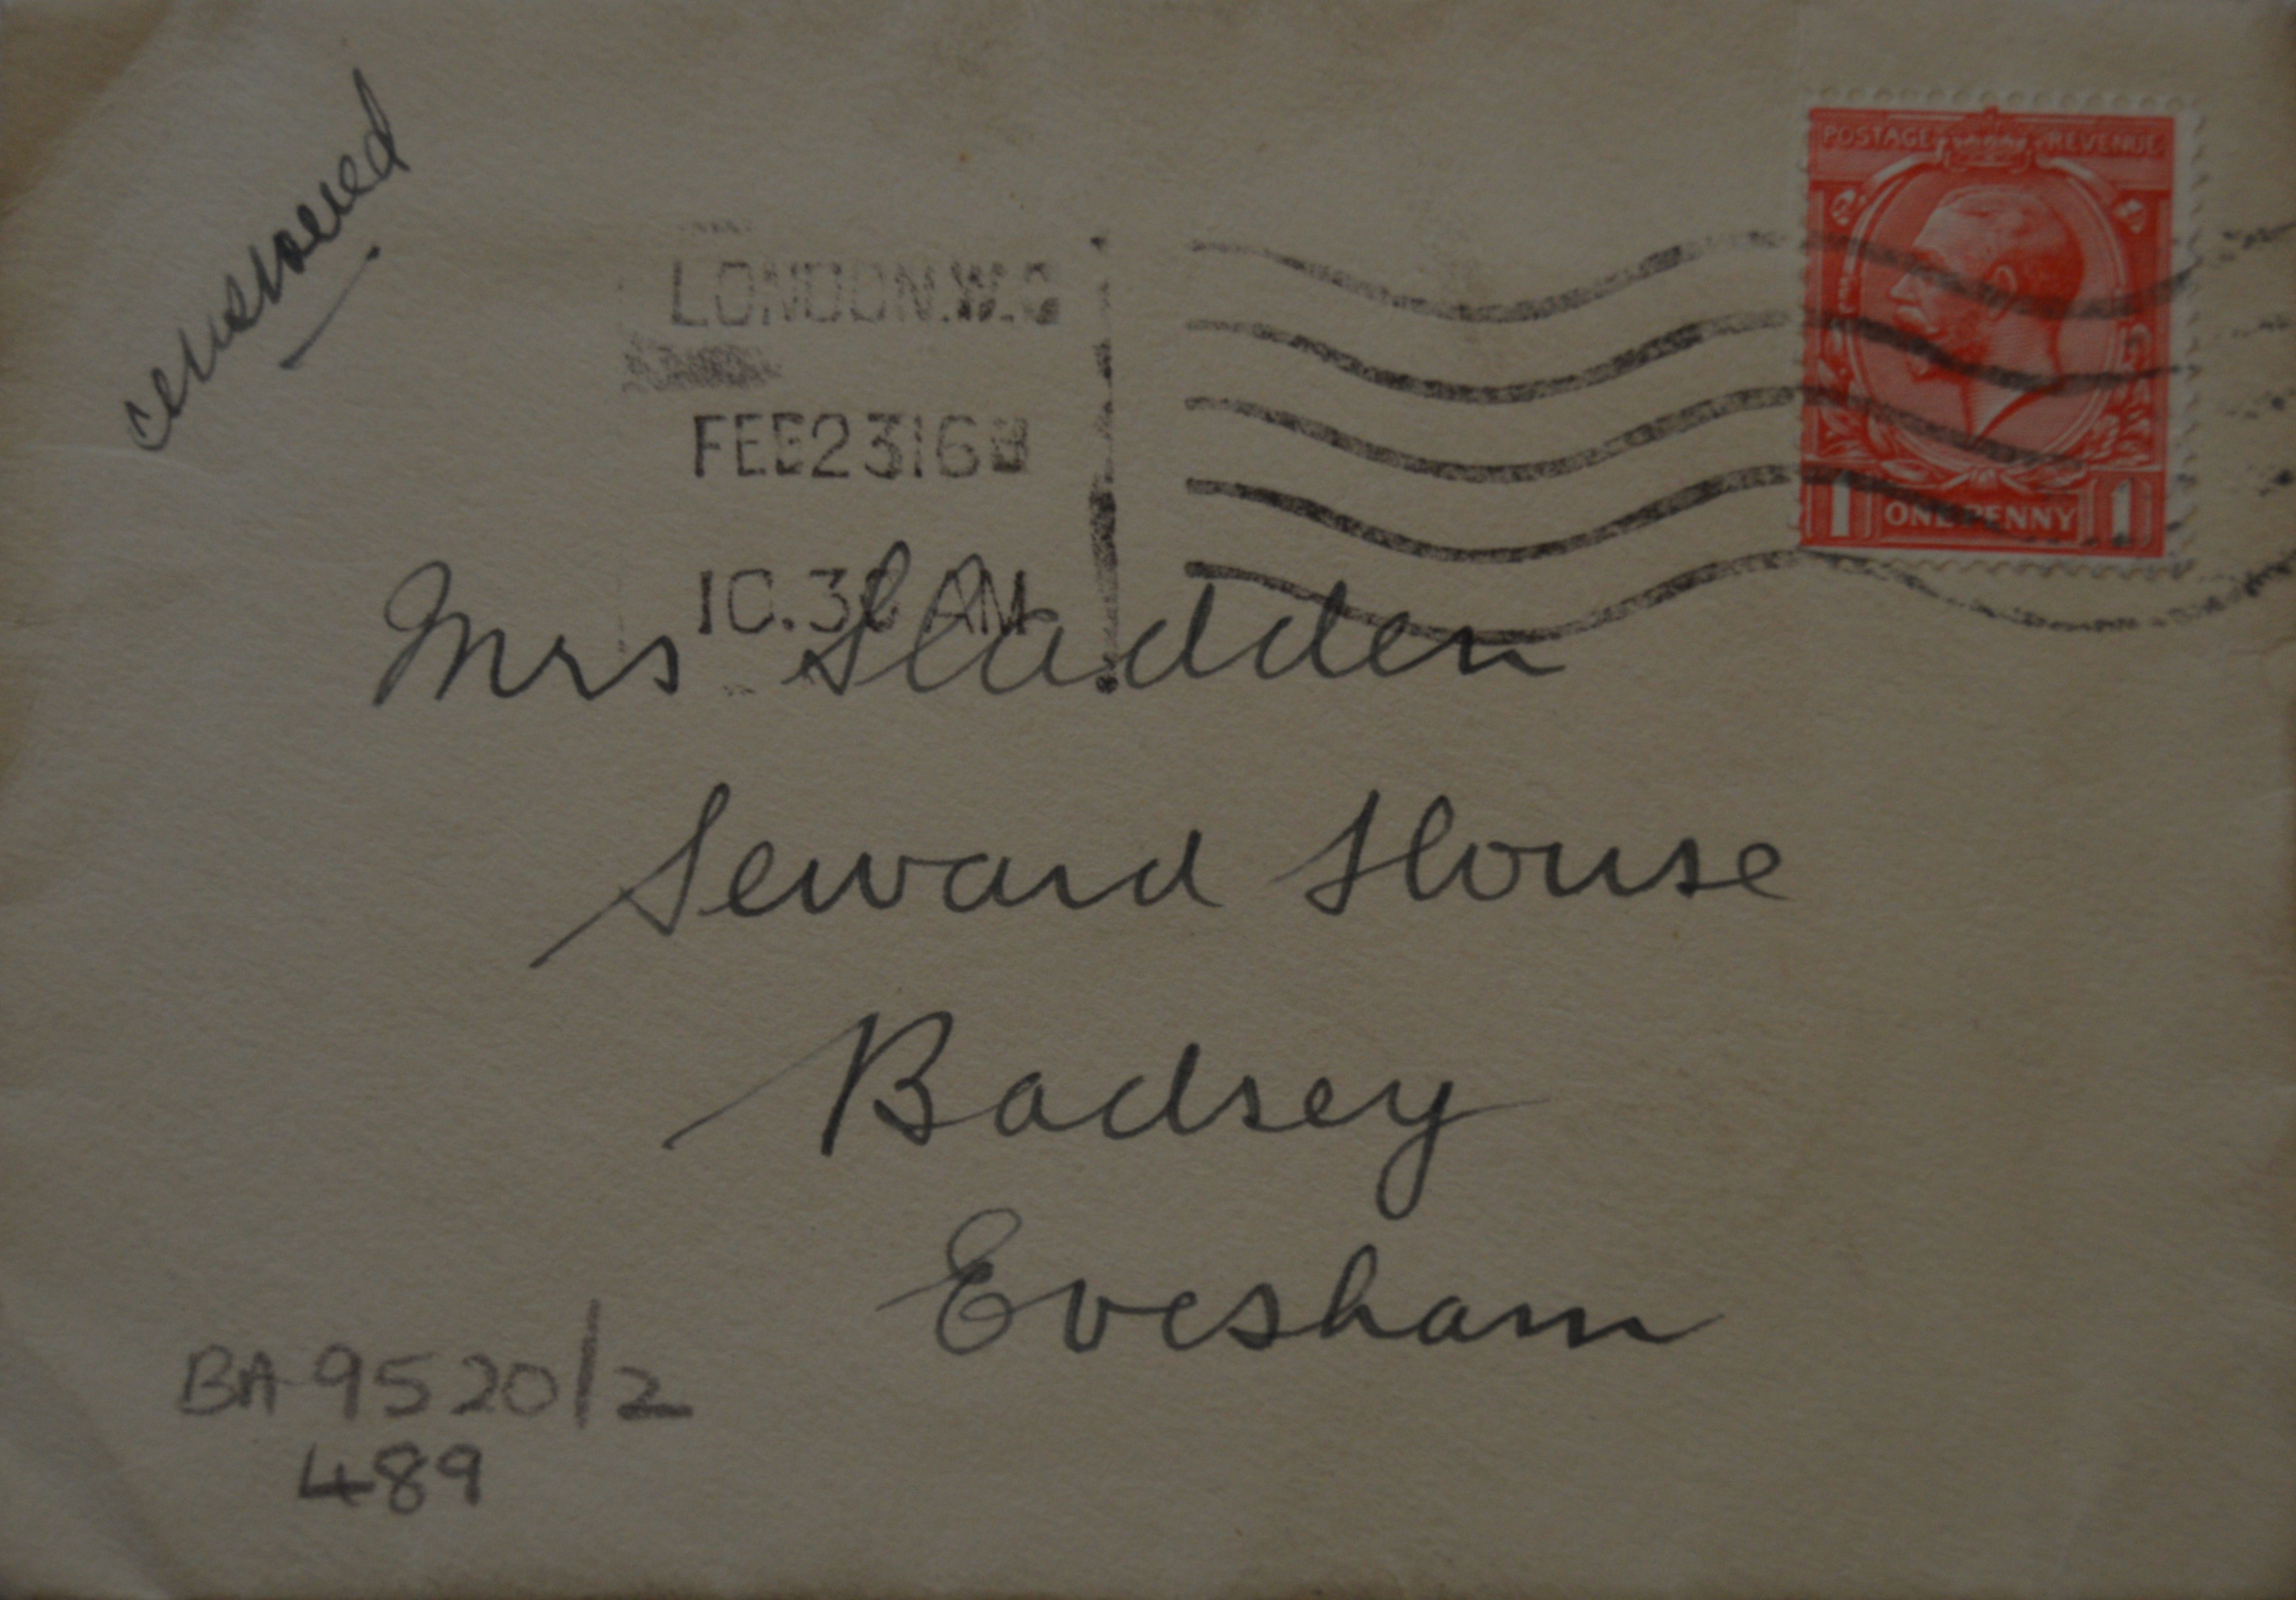 censored
POSTAGE REVENUE
LONDON.W.C
FEB 23 16 B
10.30 AM
1 ONE PENNY 1
Mrs Sladden
Seward House
Badsey
Evesham
BA 9520/2
489